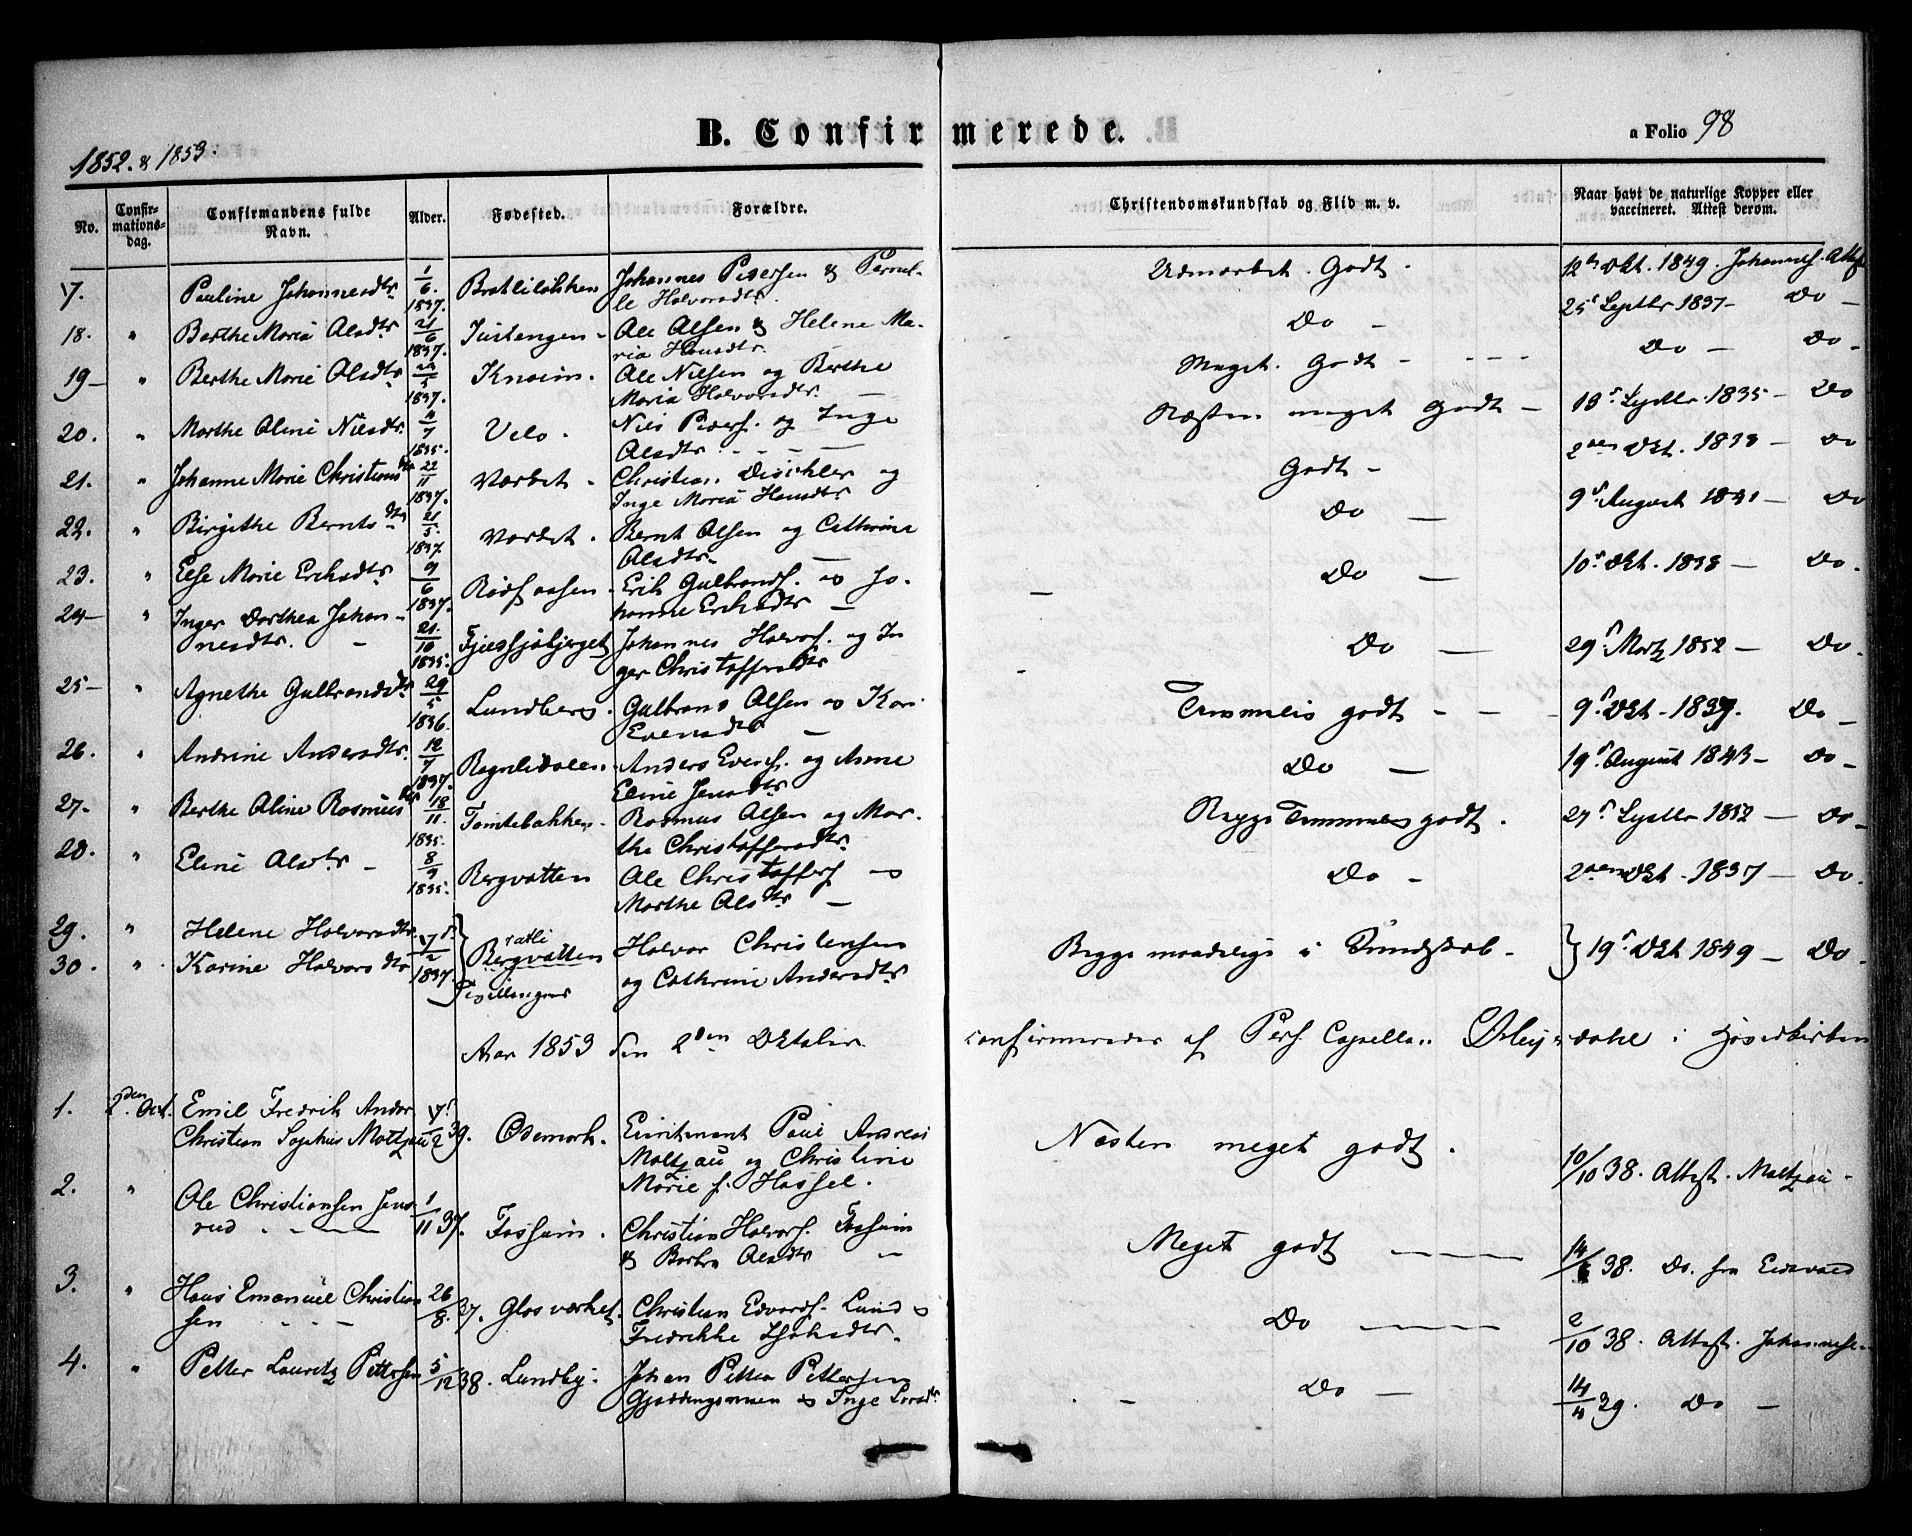 B. Confirmerede.
a Folio 98
1852. & 1853.
No.
Confir-
mations-
dag.
Confirmandens fulde
Navn.
Alder.
Fødested.
Forældre.
Christendomskundskab og Flid m. v.
Naar havt de naturlige Kopper eller
vaccineret. Attest derom.
7. Pauline Johannesdtr 1/6 1837. Johannes Pedersen & Pernil-
le Halvorsdtr. Udmærket Godt. 12te Okt. 1849. Johannes. Attest
18. " Berthe Maria Olsdtr 21/6 1837. Ole Olsen & Helene Ma-
ria Hansdtr. Do — 25 Septbr 1837 — Do —
19 — " Berthe Marie Olsdtr 5 1837. Knoim. Ole Nilsen og Berthe
Maria Halvorsdtr. — Meget Godt — Do — Do —
20. " Marthe Oline Nilsdtr. 7 1835. Velo. Nils Peders. og Inge
Olsdtr. Næsten meget Godt — Septbr. 1835 — Do
21. " Johanne Marie Christians dtr 22/11 1837. Værket. Christian Dischler og
Inge Maria Hansdtr Godt — Okt. 1838 — Do
22. " Birgithe Bernts dtr 21/5 1837. Værket. Bernt Olsen og Cathrine
Olsdtr. — Do — 9 August 1841 — Do
23. " Else Marie Ericksdtr 9/6 1837. Rødsaasen. Erik Gulbrands. og Jo-
hanne Ericksdtr — Do — 10 Okt. 1838 — Do.
24 — " Inger Dorthea Johan-
nesdtr. — 21/10 1835. Johannes Halvors. og In
ger Christoffersdtr Do — 29 Martz 1852 — Do.
25 — " Agnethe Gulbrandsdtr 29/5 1836. Lundberg. Gulbrand Olsen og Kari
Evensdtr — Temmelig godt — 9 Okt. 1837. Do —
26. " Andrine Andersdtr. 12/7 1837. Anders Evens. og Anne
Eline Jensdtr Do — 19 August 1843 — Do —
27 — " Berthe Oline Rasmus dtr 18/11 1835. Tomtebakken. Rasmus Olsen og Mar-
the Christoffersdtr. Begge Temmelig godt. 27 Septbr 1852 — Do —
28. " Eline Olsdtr — 8/9 1835. Bergvatten Ole Christoffers og
Marthe Olsdtr — Do — 2den Okt. 1837 — Do.
29. " Helene Halvorsdtr 7/2 1837
30. " Karine Halvorsdtr Bergvatten Tvillinger Halvor Christensen
og Cathrine Andersdtr. Begge maadelige i Kundskab. 19 Okt 1849 — Do.
Aar 1853 den 2den Oktober confirmerede af Pers. Capellan i Hovedkirken
1. 2den Oct. Emil Fredrik Ander
Christian Sophus Moltzau 7/2 39. Ødemark. Paul Andreas
Moltzau og Christine
Marie f. Hassel. Næsten meget godt. 10/10 38. Attest. Moltzau.
2. " Ole Christiansen Jens
rud — 1/11 37. Fossum. Christian Halvors. Fossum
& Barbra Olsdtr — Meget godt — 14/6 38. Do. fra Eidsvold
3. " Hans Emanuel Christian
sen — 26/8. 37. Glasværket. Christian Edvards. Lund &
Fredrikke Do — 2/10 38. Attest. Johannese.
4. " Petter Lauritz Pettersen 5/12 38. Lundby. Johan Petter Pettersen
& Inge Do — 14/4 39. Do —